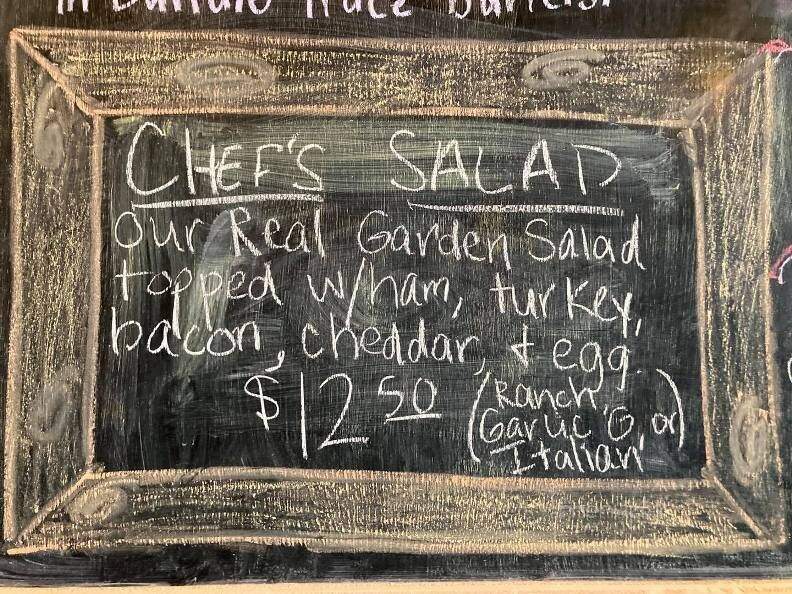 in Buffalo Trace Barrels.
CHEF'S SALAD
our Real Garden Salad
topped w/ham, turkey,
bacon, cheddar, + egg.
$12 50
(Ranch,
Garlic, O, or)
Italian